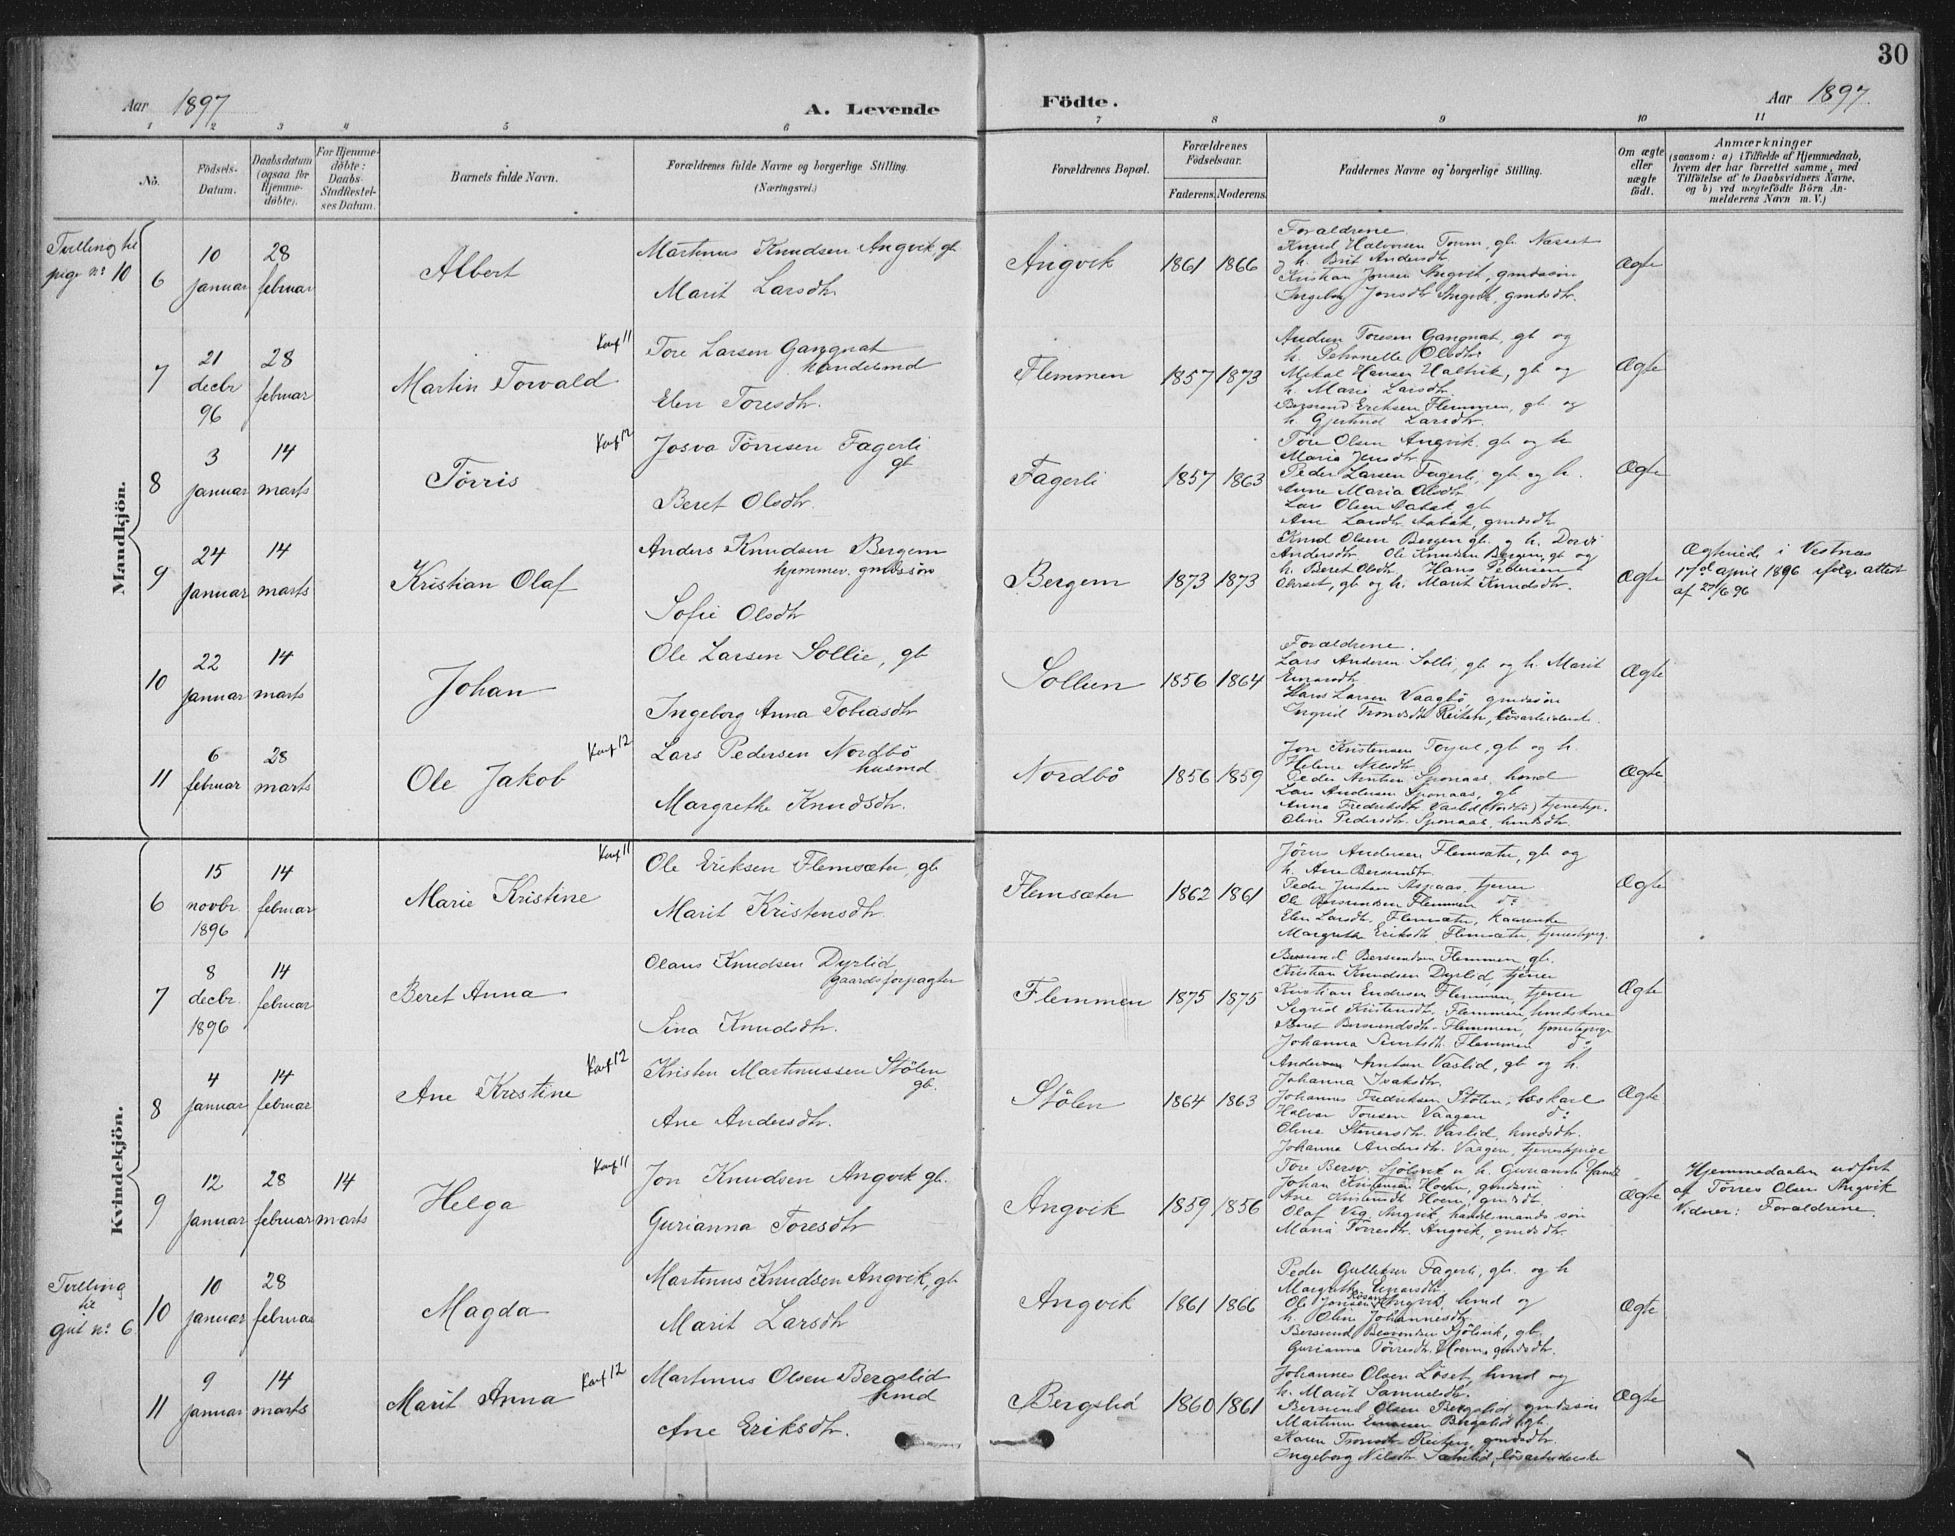 30
Aar 1897
A. Levende Födte.
Aar 1897.
1 2 3 4 5 6 7 8 9 10 11
No.
Födsels-
Datum.
Daabsdatum
(ogsaa for
Hjemme-
döbte).
For Hjemme-
döbte:
Daabs-
Stadfæstel-
ses Datum.
Barnets fulde Navn.
Forældrenes fulde Navne og borgerlige Stilling.
(Næringsvei.)
Forældrenes Bopæl.
Forældrenes
Födselsaar.
Faderens. Moderens.
Faddernes Navne og borgerlige Stilling.
Om ægte
eller
uægte
födt.
Anmærkninger
(saasom: a) i Tilfælde af Hjemmedaab,
hvem der har forrettet samme, med
Tilföielse af to Daabsvidners Navne,
og b) ved uegtefödte Börn An-
melderens Navn m. V.)
Mandkjön.
Tvilling til
pige nº 10
6
10
januar
28
februar
Albert
Martinus Knudsen Angvik, gb
Marit Larsdtr
Angvik
1861 1866
Forældrene
Knud Halvorsen Torm, gb. Nesset
og h. Brit Andersdtr
Kristian Jonsen Angvik, gmdssön
Ingeborg Jonsdtr Angvik, gmdsdtr.
Ægte
7
21
decbr
96
28
februar
Martin Torvald
Konf 11
Tore Larsen Gangnat
handelsmd
Elen Toresdtr.
Flemmen
1857 1873
Anders Toresen Gangnat, gb og
h. Pehronelle Olsdtr
Mikal Hansen Haltvik, gb og
h. Marie Larsdtr
Bersvend Eriksen Flemmen, gb. og
h. Gjertrud Larsdtr.
Ægte
8
3
januar
14
marts
Tørris
Konf 12
Josva Tørresen Fagerli
gb
Beret Olsdtr.
Fagerli
1857 1863
Tore Olsen Angvik, gb og h
Maria Jensdtr
Peder Larsen Fagerli, gb og h.
Anne Maria Olsdtr
Lars Olsen Aabak, gb
Ane Larsdtr Aabak, gmdsdtr
Ægte
9
24
januar
14
marts
Kristian Olaf
Anders Knudsen Bergem
hjemmev. gmdssön
Sofie Olsdtr
Bergem
1873 1873
Knud Olsen Bergem gb. og h. Dordi
Andersdtr Ole Knudsen Bergem, gb og
h. Beret Olsdtr, Hans Pettersen
gb og h. Marit Knudsdtr.
Ægte
Ægteviede i Vestnæs
17d april 1896 ifølge attest
af 27/6 96
10
22
januar
14
marts
Johan
Ole Larsen Sollie, gb
Ingeborg Anna Tobiasdtr
Sollien
1856 1864
Forældrene.
Lars Andersen Solli, gb og h. Marit
Einarsdtr
Hans Larsen Vaagbö, gmdssön
Ingrid Trondsdtr Reiten, lösarbeiderske.
Ægte
11
6
februar
28
marts
Ole Jakob
Konf 12
Lars Pedersen Nordbö
husmd
Margrethe Knudsdtr.
Nordbö
1856 1859
Jon Kristensen Torjul, gb og h.
Helene Nilsdtr
Peder Arntsen Sponaas, hmnd
Lars Andersen Sponaas, gb
Anna Fredriksdtr Vaslid (Nordbö) tjenestep.
Oline Pedersdtr. Sponaas, hmdsdtr.
Ægte
Kvindekjön.
6
15
novbr.
1896
14
februar
Marie Kristine
Konf 11
Ole Eriksen Flemsæter, gb
Marit Kristensdtr.
Flemsæter
1862 1861
Jörns Andersen Flemsæter, gb og
h. Ane Bersvendsdtr.
Peder Justsen Aspaas, tjener
Ole Bersvendsen Flemmen dº
Elen Larsdtr. Flemsæter, kaarenke
Margrethe Eriksdtr Flemsæter, tjenestepig.
Ægte
7
8
decbr.
1896
14
februar
Beret Anna
Olaus Knudsen Dyrlid,
gaardsforpagter
Sina Knudsdtr.
Flemmen
1875 1875
Bersvend Bersvendsen Flemmen, gb.
Kristian Knudsen Dyrlid, tjener
Kristian Endresen Flemmen, tjener
Sigrid Kristensdtr. Flemmen, hmdskone
Beret Bersvendsdtr. Flemmen, tjenestepige
Johanna Flemmen dº
Ægte
8
4
januar
14
februar
Ane Kristine
Konf 12
Kristen Martinussen Stölen
gb.
Ane Andersdtr.
Stölen
1864 1863
Anders Arntsen Vaslid, gb og h.
Johanna Isaksdtr.
Johannes Fredriksen Stölen, löskarl
Halvor Toresen Vaagen dº
Oline Stenersdtr. Vaslid, hmdsdtr.
Johanna Andersdtr. Vaagen, tjenestepige
Ægte
9
12
januar
28
februar
14
marts
Helga
Konf 11
Jon Knudsen Angvik gb.
Gurianna Toresdtr
Angvik
1859 1856
Tore Bersv. Sjölsvik og h. Gurianna
Johan Kristensen Hoem, gmdssön
Ane Kristensdtr Hoem, gmdsdtr.
Olaf Vig Angvik, handelsmands sön
Maria Törresdtr. Angvik, gmdsdtr.
Ægte
Hjemmedaaben udført
af Törres Olsen Angvik
Vidner: Forældrene.
Tvilling
til
gut nº 6
10
10
januar
28
februar
Magda
Martinus Knudsen Angvik, gb
Marit Larsdtr
Angvik
1861 1866
Peder Gulleksen Fagerli, gb. og h
Margrethe Einarsdtr.
Ole Jonsen Angvik, hmd og
h. Olin Johannesdtr
Bersvend Bersvendsen Sjölsvik, gb.
Gurianna Törresdtr. Hoem, gmdsdtr.
Ægte
11
9
januar
14
marts
Marit Anna
Konf 12
Martinus Olsen Bergslid
hmd
Ane Eriksdtr.
Bergslid
1860 1861
Johannes Olsen Löset, hmd og
h. Marit Samuelsdtr.
Bersvend Olsen Bergslid gmdssön
Martinus Bergslid, gb.
Karen Tronsdtr Reiten, gmdsdtr.
Ingeborg Nilsdtr. lösarbeiderske
Ægte